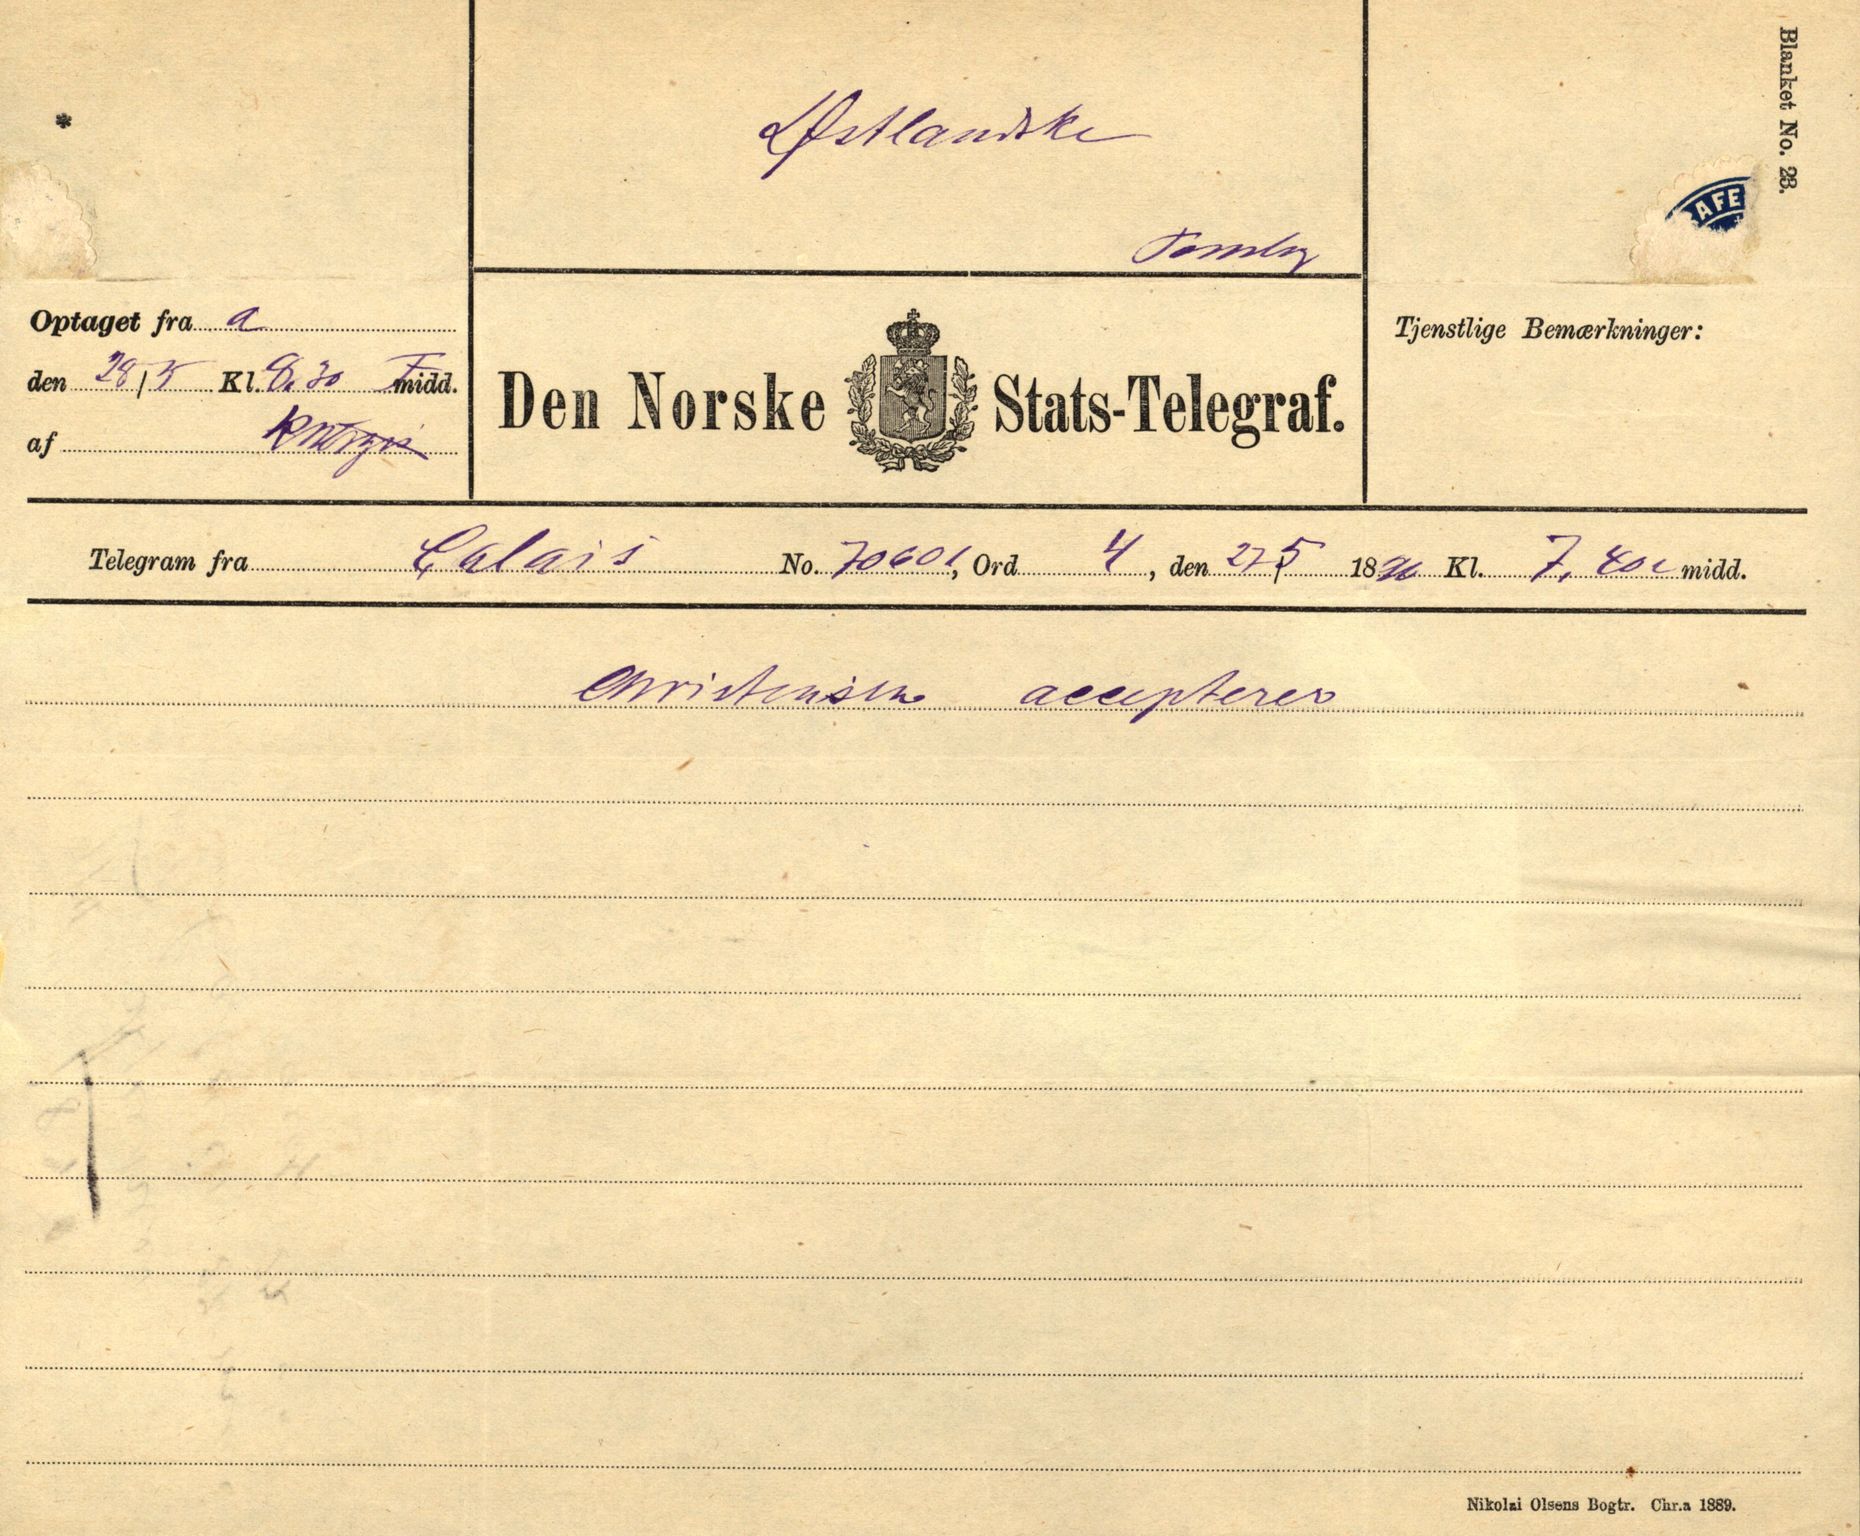 Blanket No. 23.
*
Østlandske
Tønsberg
AFE
Optaget fra a
den 28/5 Kl. 8.30 F midd.
af
Den Norske Stats-Telegraf.
Tjenstlige Bemærkninger:
Telegram fra Calais No. 70601, Ord 4, den 27/5 1890 Kl. 7,40 midd.
Christensen accepteres
Nikolai Olsens Bogtr. Chr.a 1889.